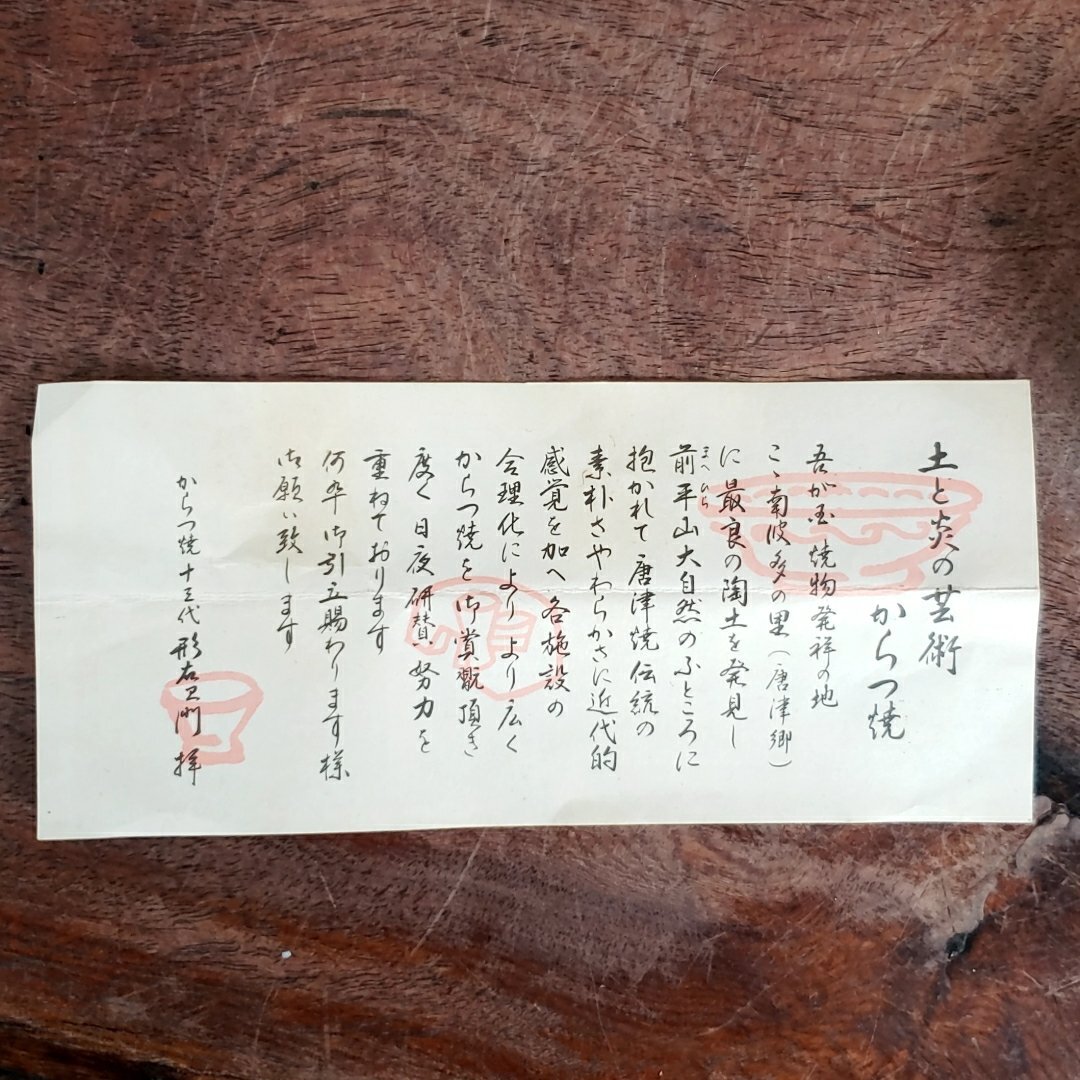 土と炎の芸術
からつ焼
吾が国焼物発祥の地
こゝ南波多の里(唐津郷)
に最良の陶土を発見し
まへひら
前平山大自然のふところに
抱かれて唐津焼伝統の
素朴さやわらかさに近代的
感覚を加へ各施設の
合理化によりより広く
からつ焼を御賞翫頂き
度く日夜研賛努力を
重ねております
何卒御引立賜わります様
お願い致します
からつ焼十三代 形右ヱ門 拝